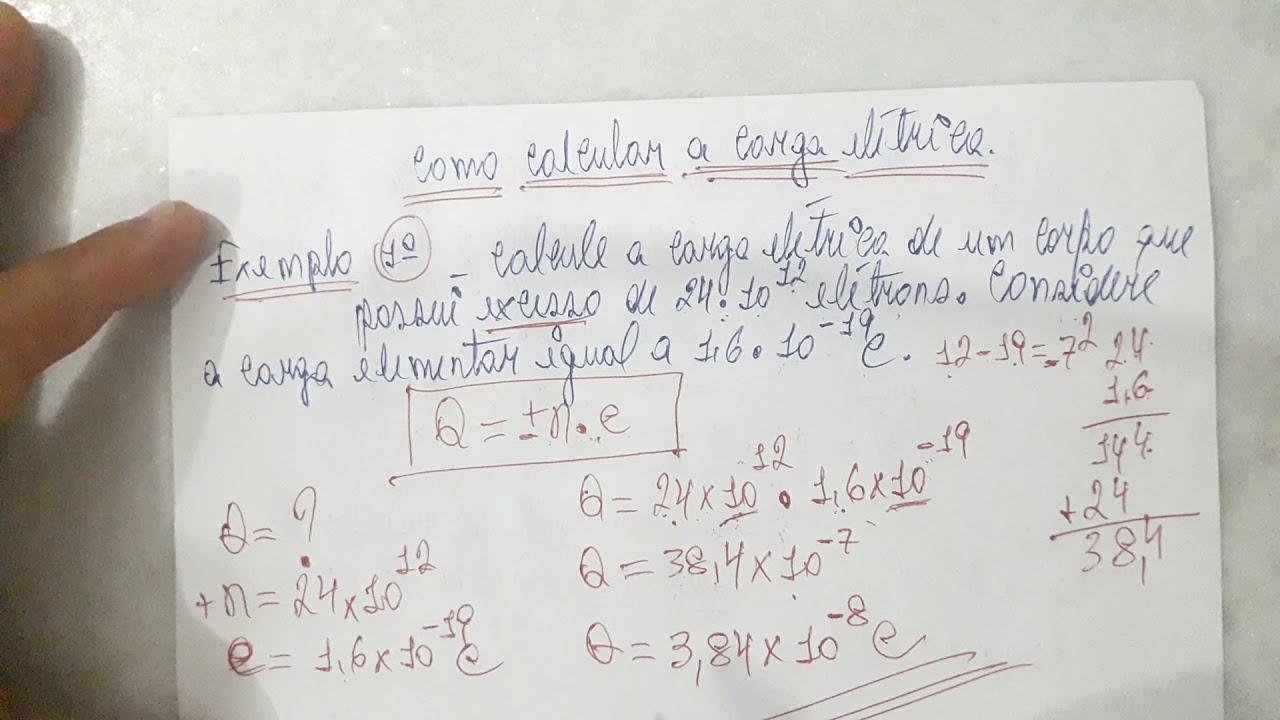 como calcular a carga elétrica.
Exemplo 1º - calcule a carga elétrica de um corpo que
possui excesso de 24.10¹² elétrons. Considere
a carga elementar igual a 1,6.10⁻¹⁹c.
12-19=-7
2
24
1,6
144
+24
38,4
Q=±n.e
Q=?
+n=24x10¹²
e=1,6x10⁻¹⁹c
Q=24x10¹².1,6x10⁻¹⁹
Q=38,4x10⁻⁷
Q=3,84x10⁻⁸c